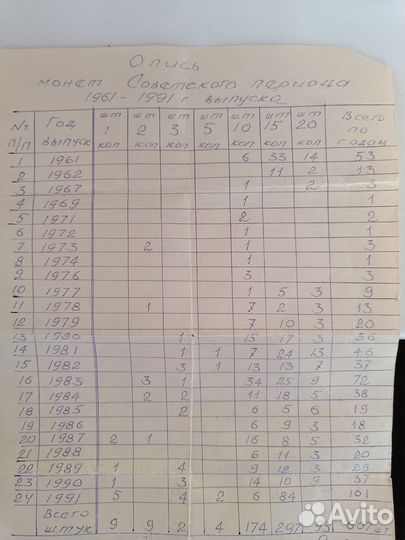 Опись
монет Советского периода
1961-1991 г выпуска
№ п/п Год выпуск шт 1 коп шт 2 коп шт 3 коп шт 5 коп шт 10 коп шт 15 коп шт 20 коп Всего по годам
1 1961 6 33 14 53
2 1962 11 2 13
3 1967 1 2 3
4 1969 1 1
5 1971 2 2
6 1972 1 1
7 1973 2 1 3
8 1974 1 1
9 1976 3 3
10 1977 1 5 3 9
11 1978 1 7 2 3 13
12 1979 7 10 3 20
13 1980 1 15 17 3 36
14 1981 1 1 7 24 13 46
15 1982 3 1 13 13 7 37
16 1983 3 1 34 25 9 72
17 1984 2 2 11 18 5 38
18 1985 2 6 5 6 19
19 1986 6 9 3 18
20 1987 2 1 16 8 5 32
21 1988 6 11 3 20
22 1989 1 4 9 12 3 29
23 1990 1 3 14 10 9 37
24 1991 5 4 2 6 84 101
Всего штук 9 9 2 4 174 297 шт
Avito